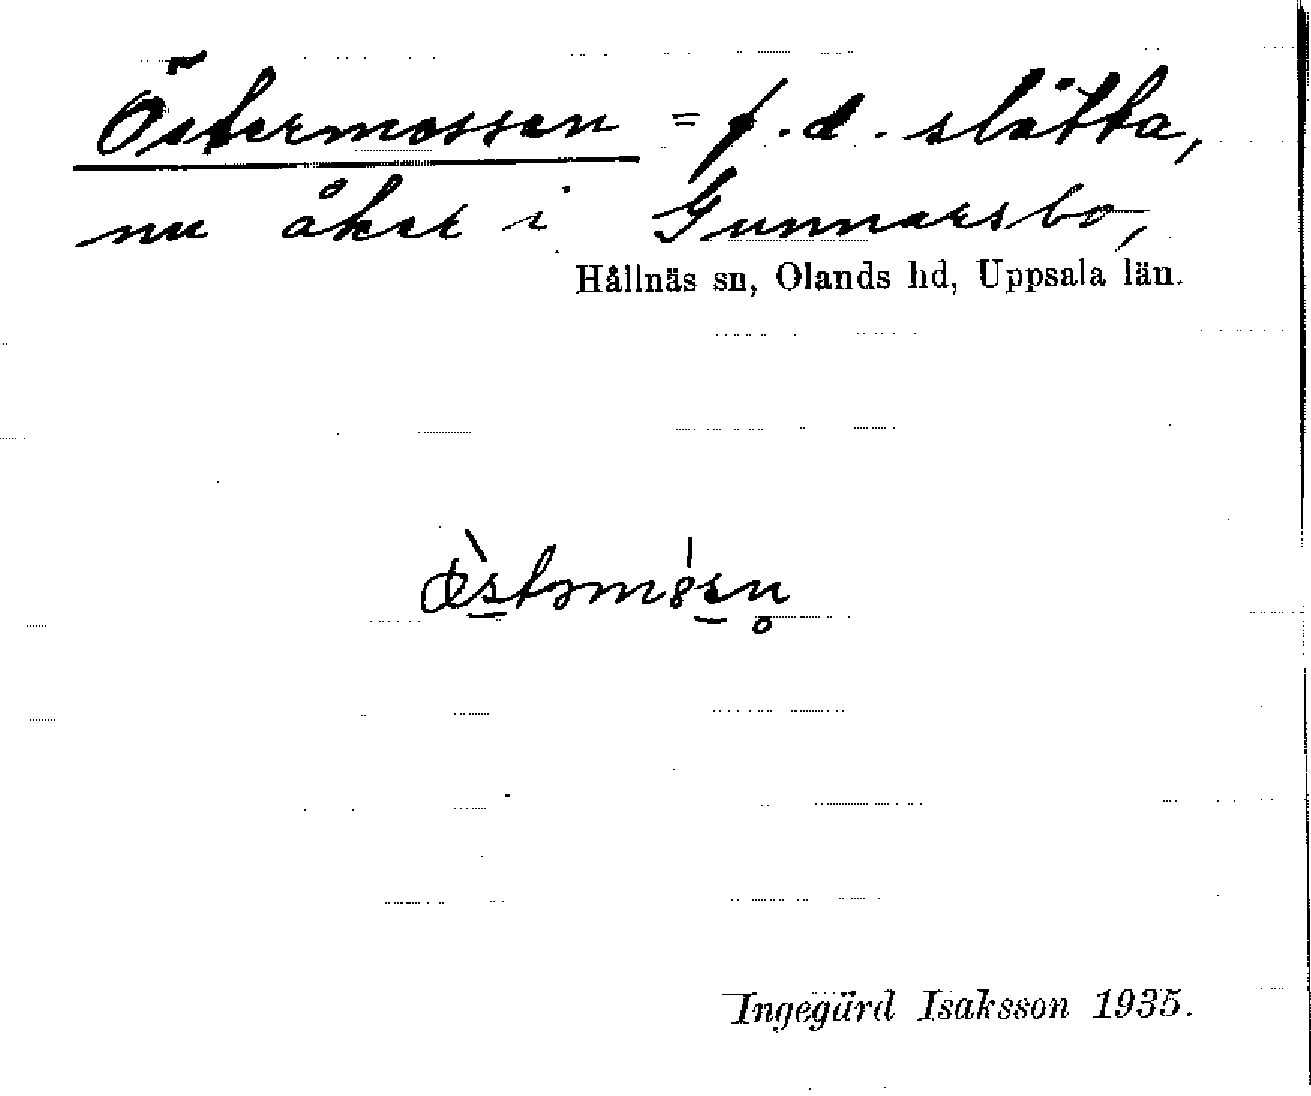 Östermossen = f.d. slåtta,
nu åker i Gunnarsbo,
Hållnäs sn, Olands hd, Uppsala län.
Ingegärd Isaksson 1935.